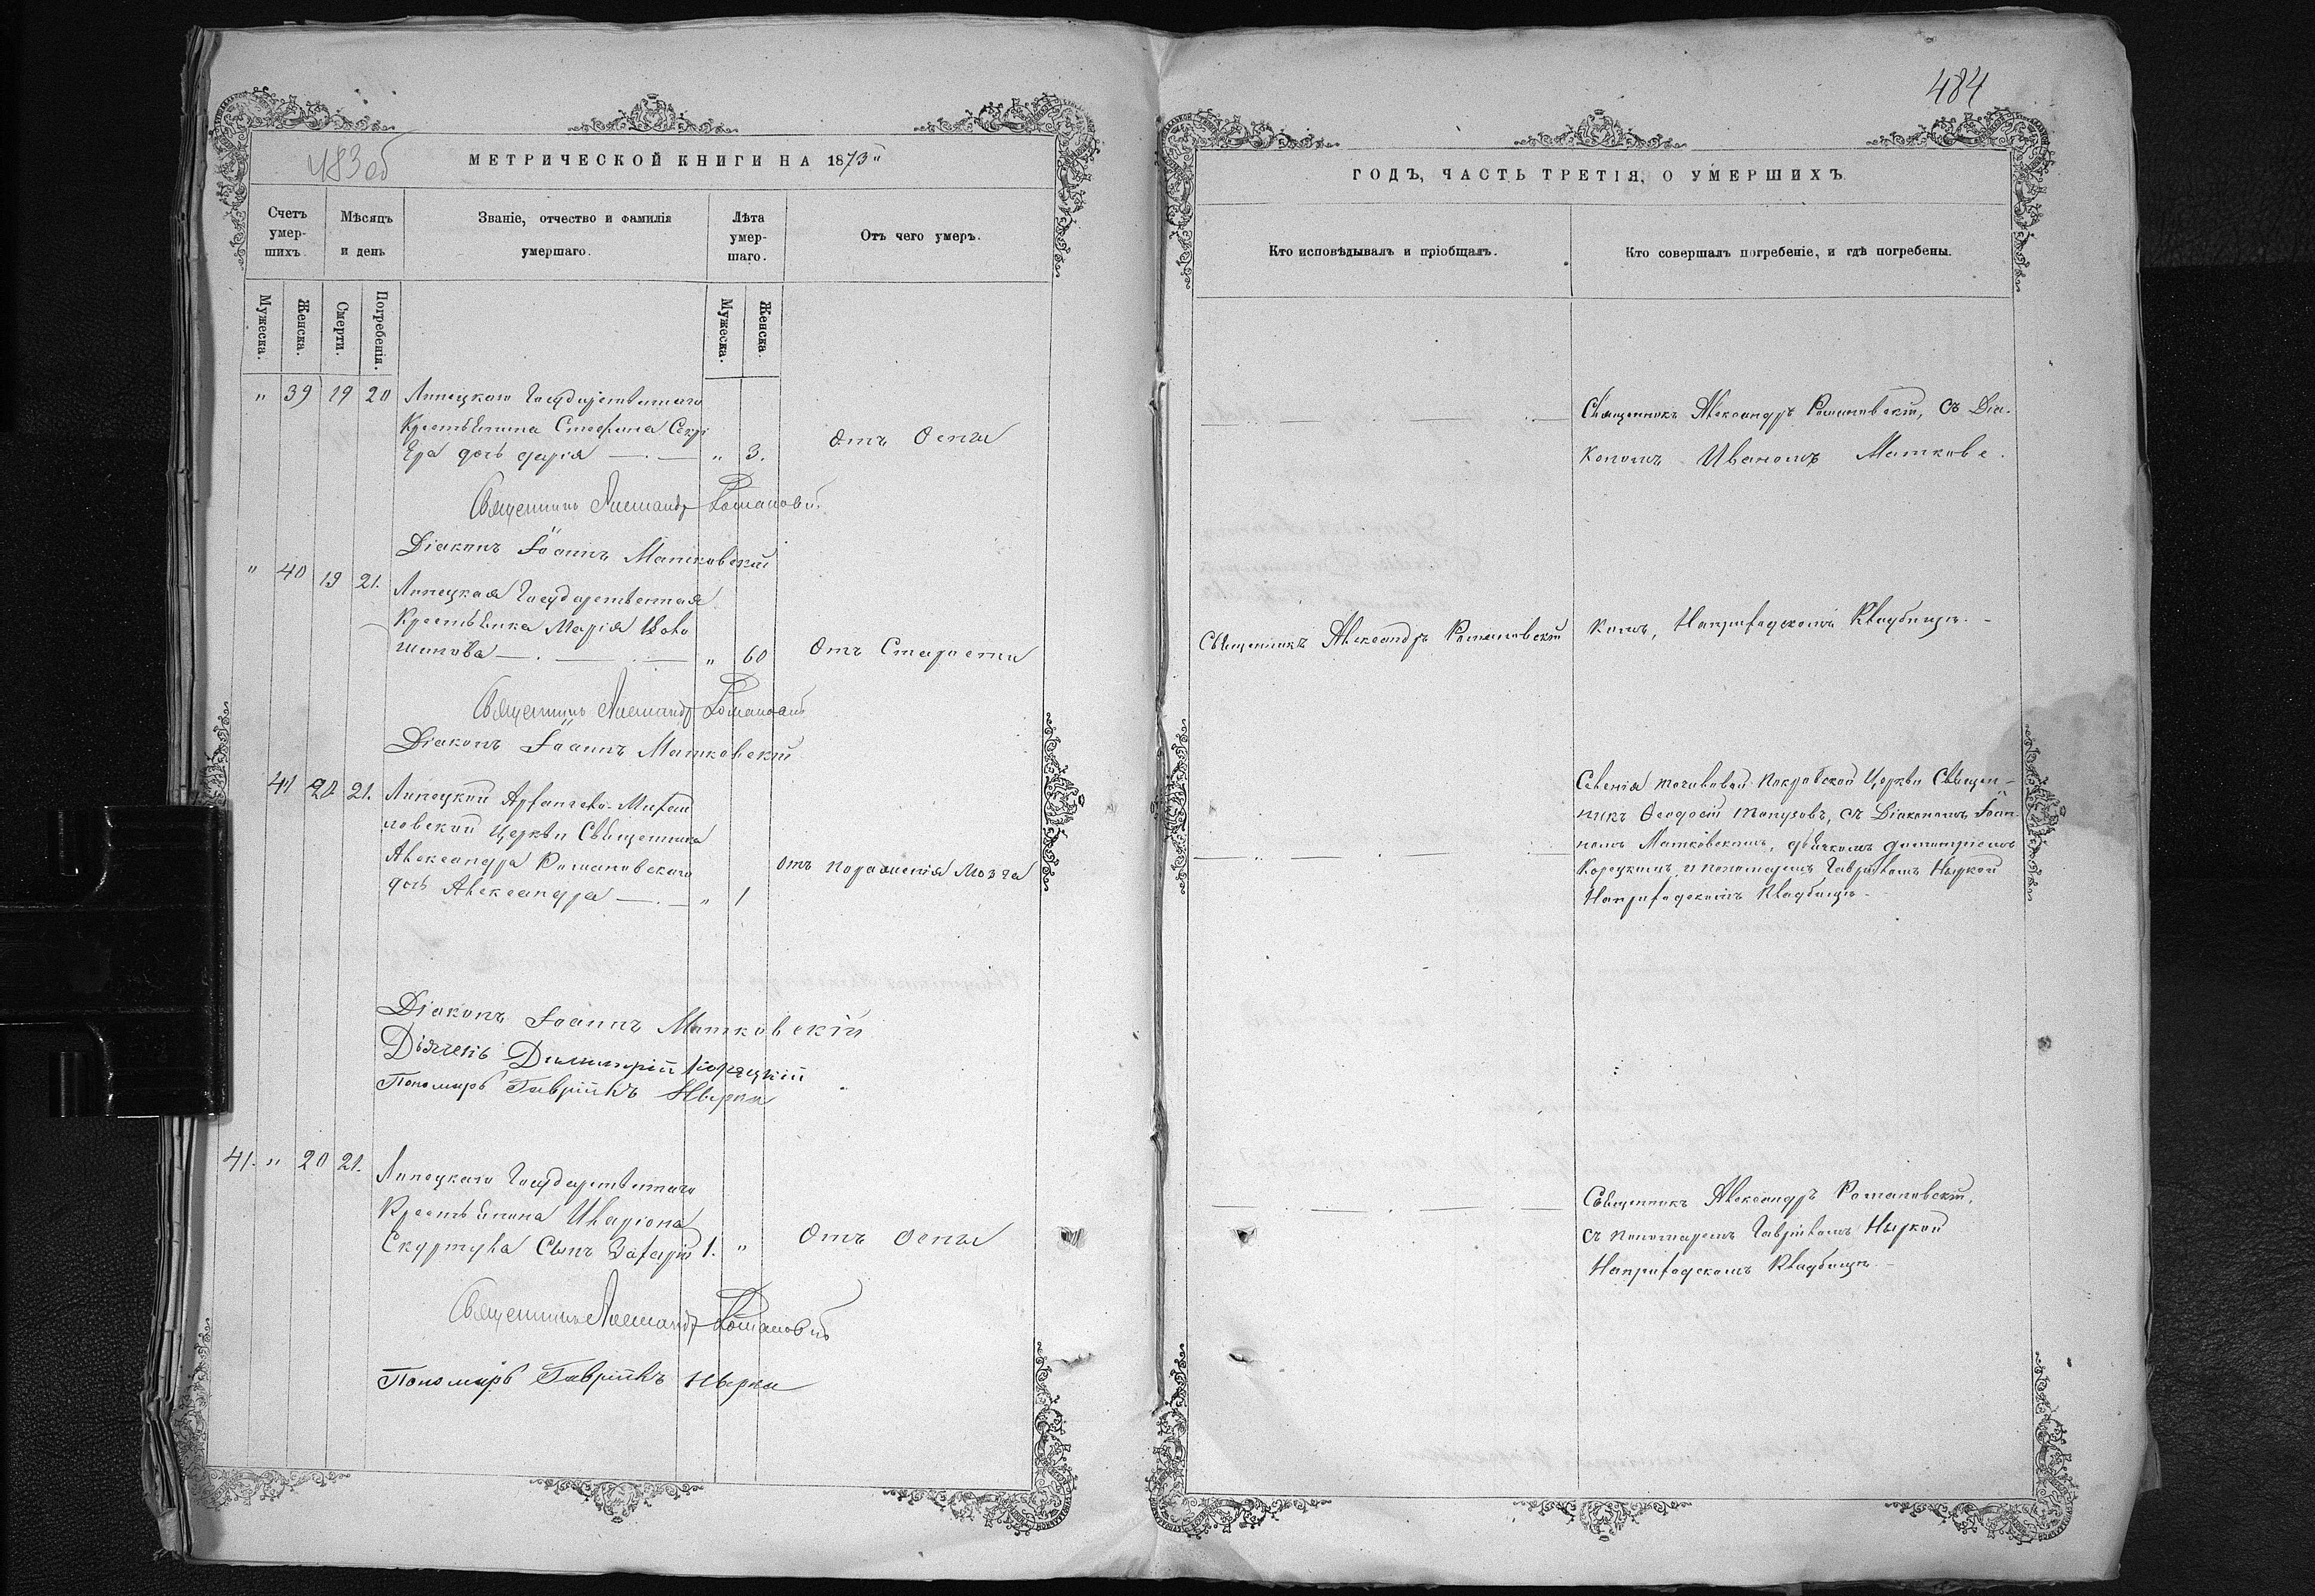 483об
МЕТРИЧЕСКОЙ КНИГИ НА 1873
Счетъ умер-шихъ.
Мѣсяцъ и день
Званіе, отчество и фамилія умершаго.
Лѣта умер-шаго.
Отъ чего умеръ.
Мужеска.
Женска.
Смерти.
Погребенія.
Мужеска.
Женска.
" 39 19 20 Липецкого Государственнаго
Крестьянина Стефана
дочь Дарія " 3. Отъ Оспы
Священникъ Александръ Романовскій
Діаконъ Іоаннъ Матковскій
" 40 19 21. Липецкая Государственная
Крестьянка Марія
" 60 Отъ Старости
Священникъ Александръ Романовскій
Діаконъ Іоаннъ Матковскій
41 20 21. Липецкой Архангело-Михаи
ловской Церкви Священника
Александра Романовскаго
дочь Александра " 1 отъ Мозга
Діаконъ Іоаннъ Матковскій
Дьячекъ Димитрій Корецкій
Пономарь Гавріилъ
41. " 20 21. Липецкаго Государственнаго
Крестьянина Иларіона
Скуртула Сынъ Захарій 1. " Отъ Оспы
Священникъ Александръ Романовскій
Пономарь Гавріилъ
484
ГОДЪ, ЧАСТЬ ТРЕТІЯ, О УМЕРШИХЪ
Кто исповѣдывалъ и пріобщалъ.
Кто совершалъ погребеніе, и гдѣ погребены.
Священникъ Александръ Романовскій, съ Діа-
кономъ Иваномъ Матковс.
Священникъ Александръ Романовскій
кимъ, Наприходскомъ Кладбищѣ.
Селенія Покровской Церкви Священ-
никъ Ѳеодосій съ Діакономъ Іоан-
номъ Матковскимъ, дьячкомъ Димитріемъ
Корецкимъ и пономаремъ Гавріиломъ
Наприходскомъ Кладбищѣ.
Священникъ Александръ Романовскій,
съ пономаремъ Гавріиломъ
Наприходскомъ Кладбищѣ.